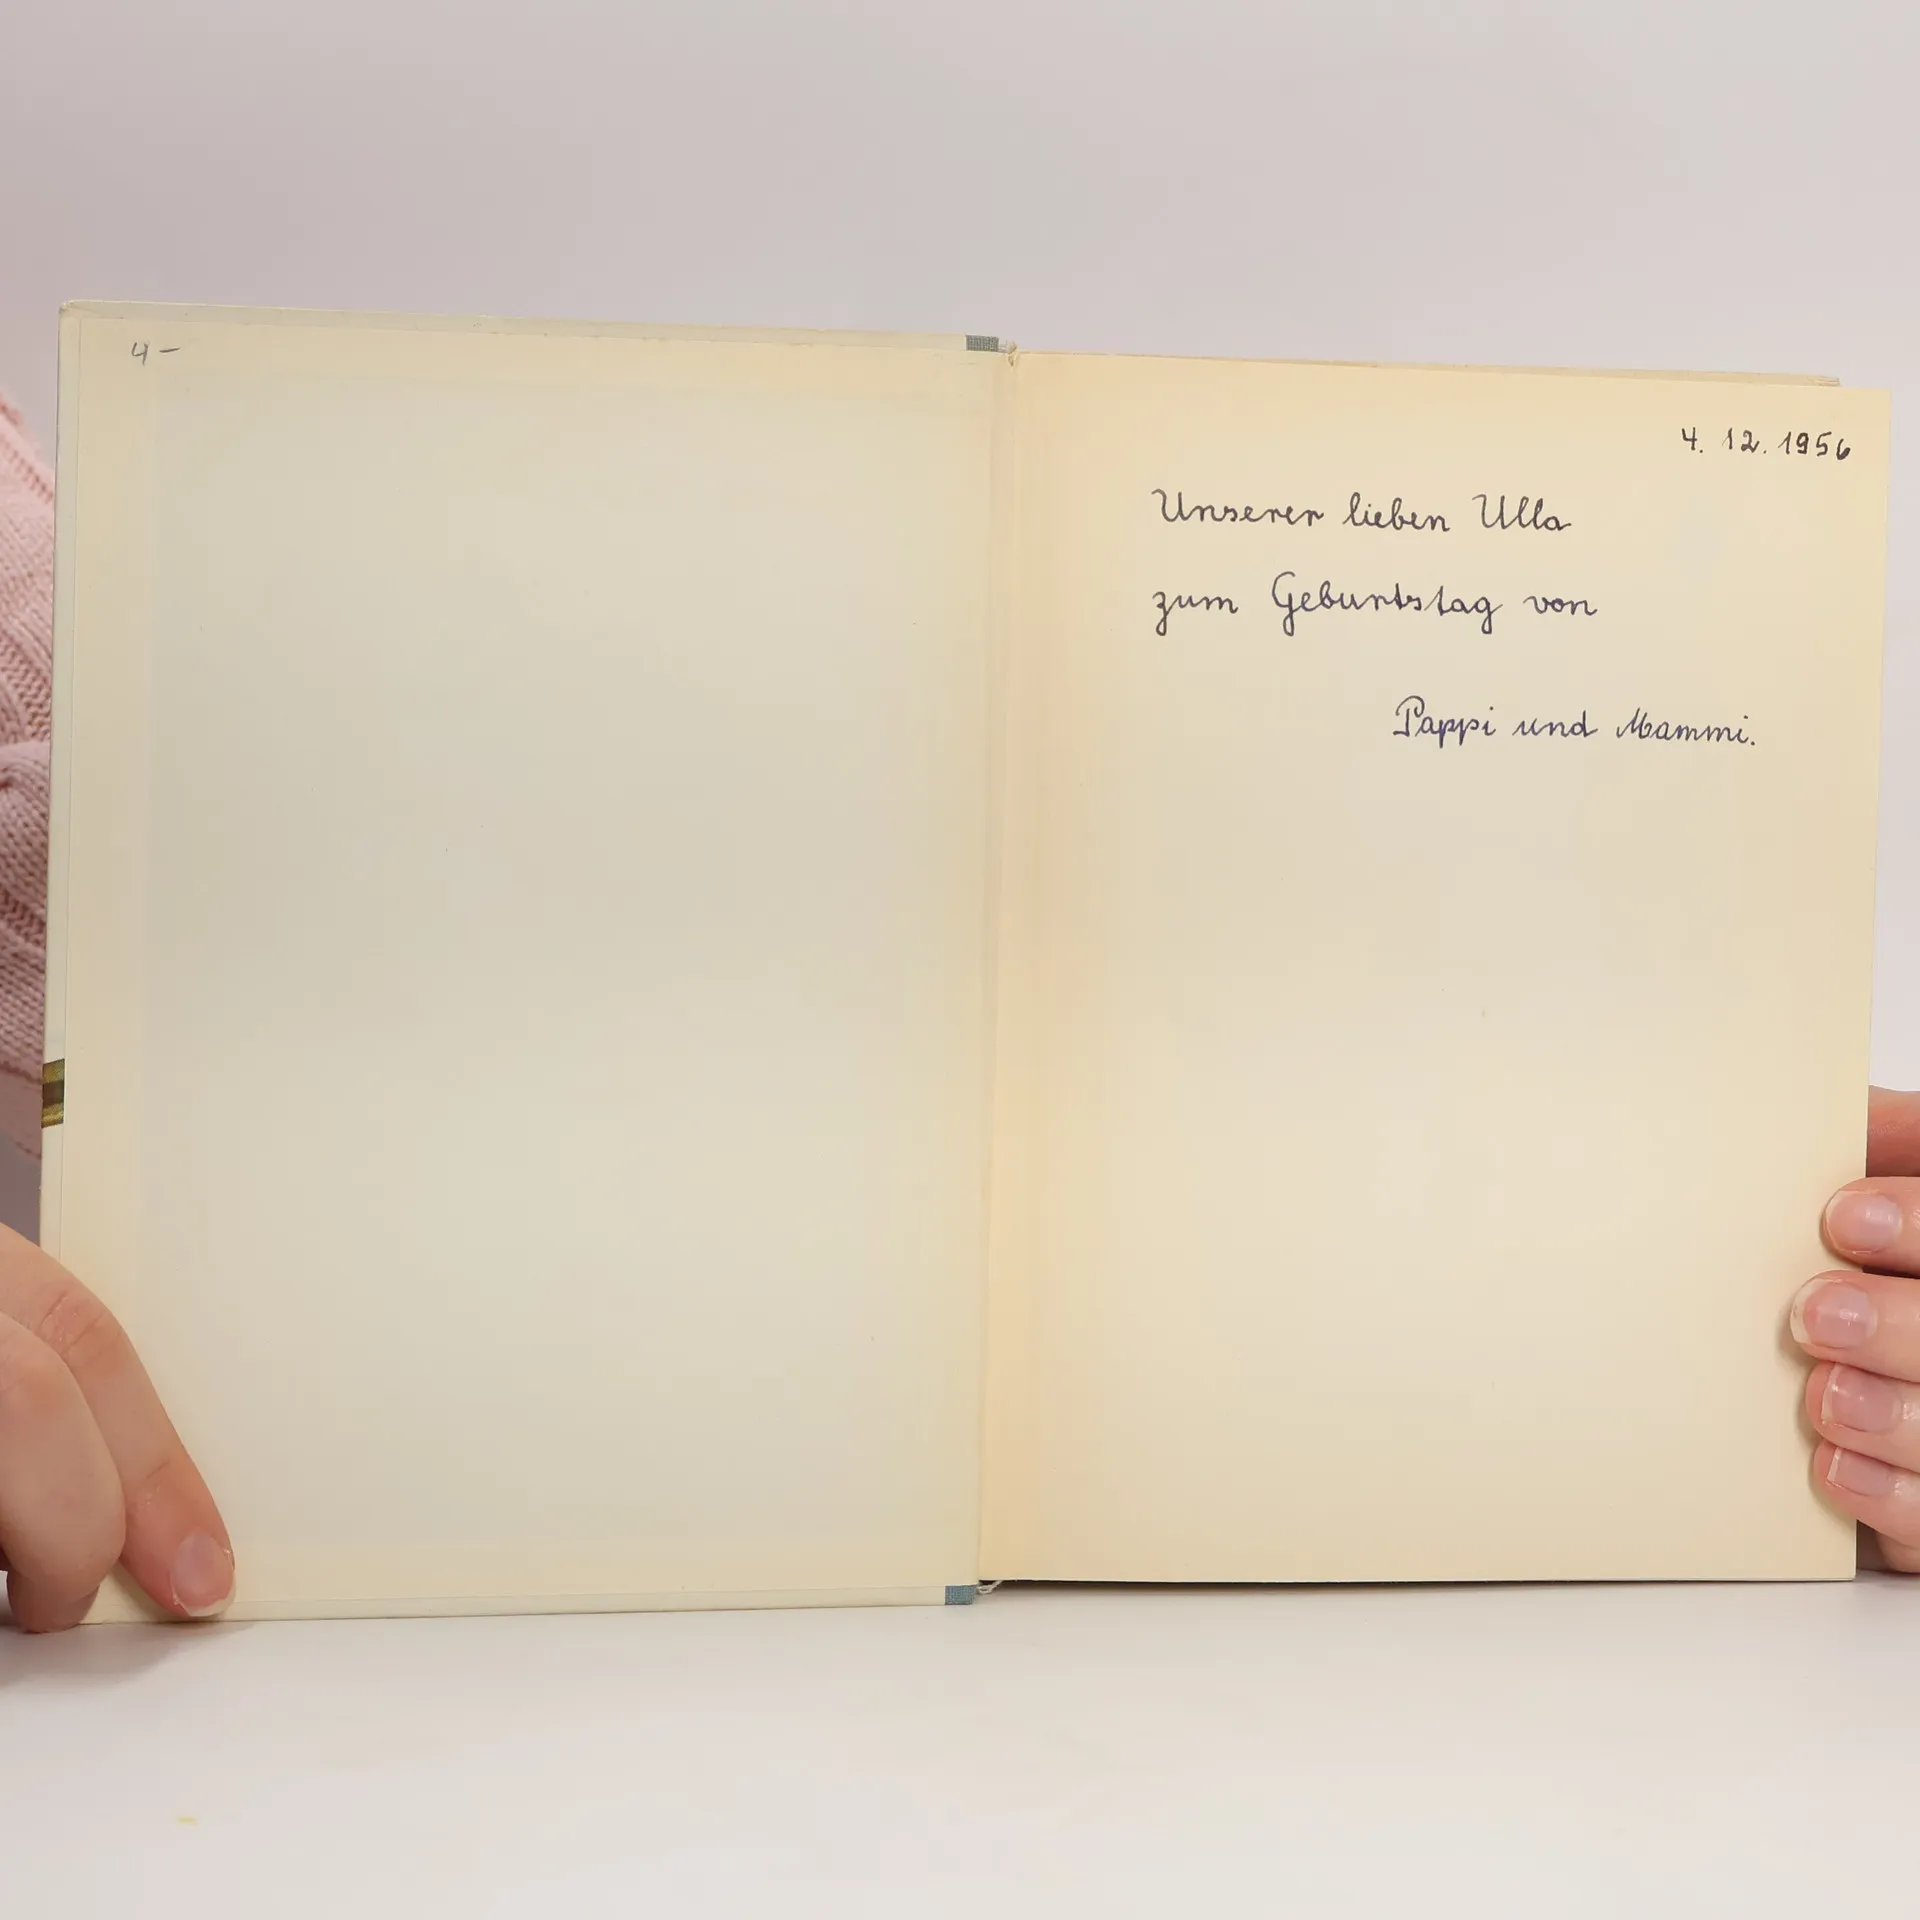 4 –
4. 12. 1956
Unserer lieben Ulla
zum Geburtstag von
Pappi und Mammi.